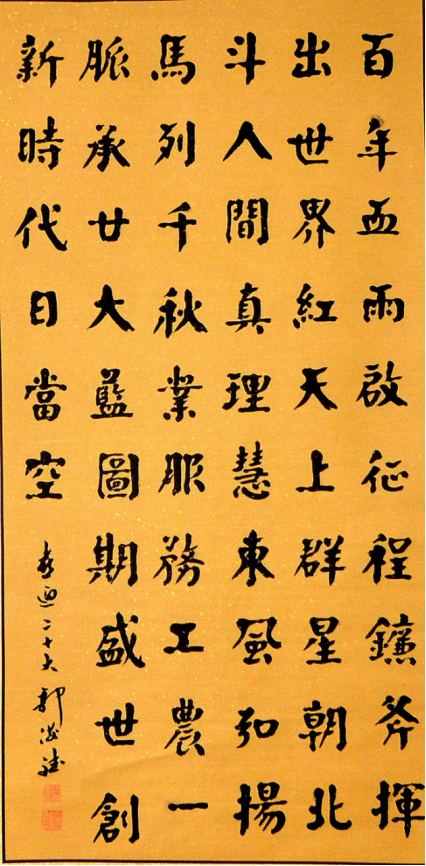 百年血雨啟征程鐮斧揮
出世界紅天上群星朝北
斗人間真理慧東風弘揚
馬列千秋業服務工農一
脈承廿大藍圖期盛世創
新時代日當空
喜迎二十大 郭海